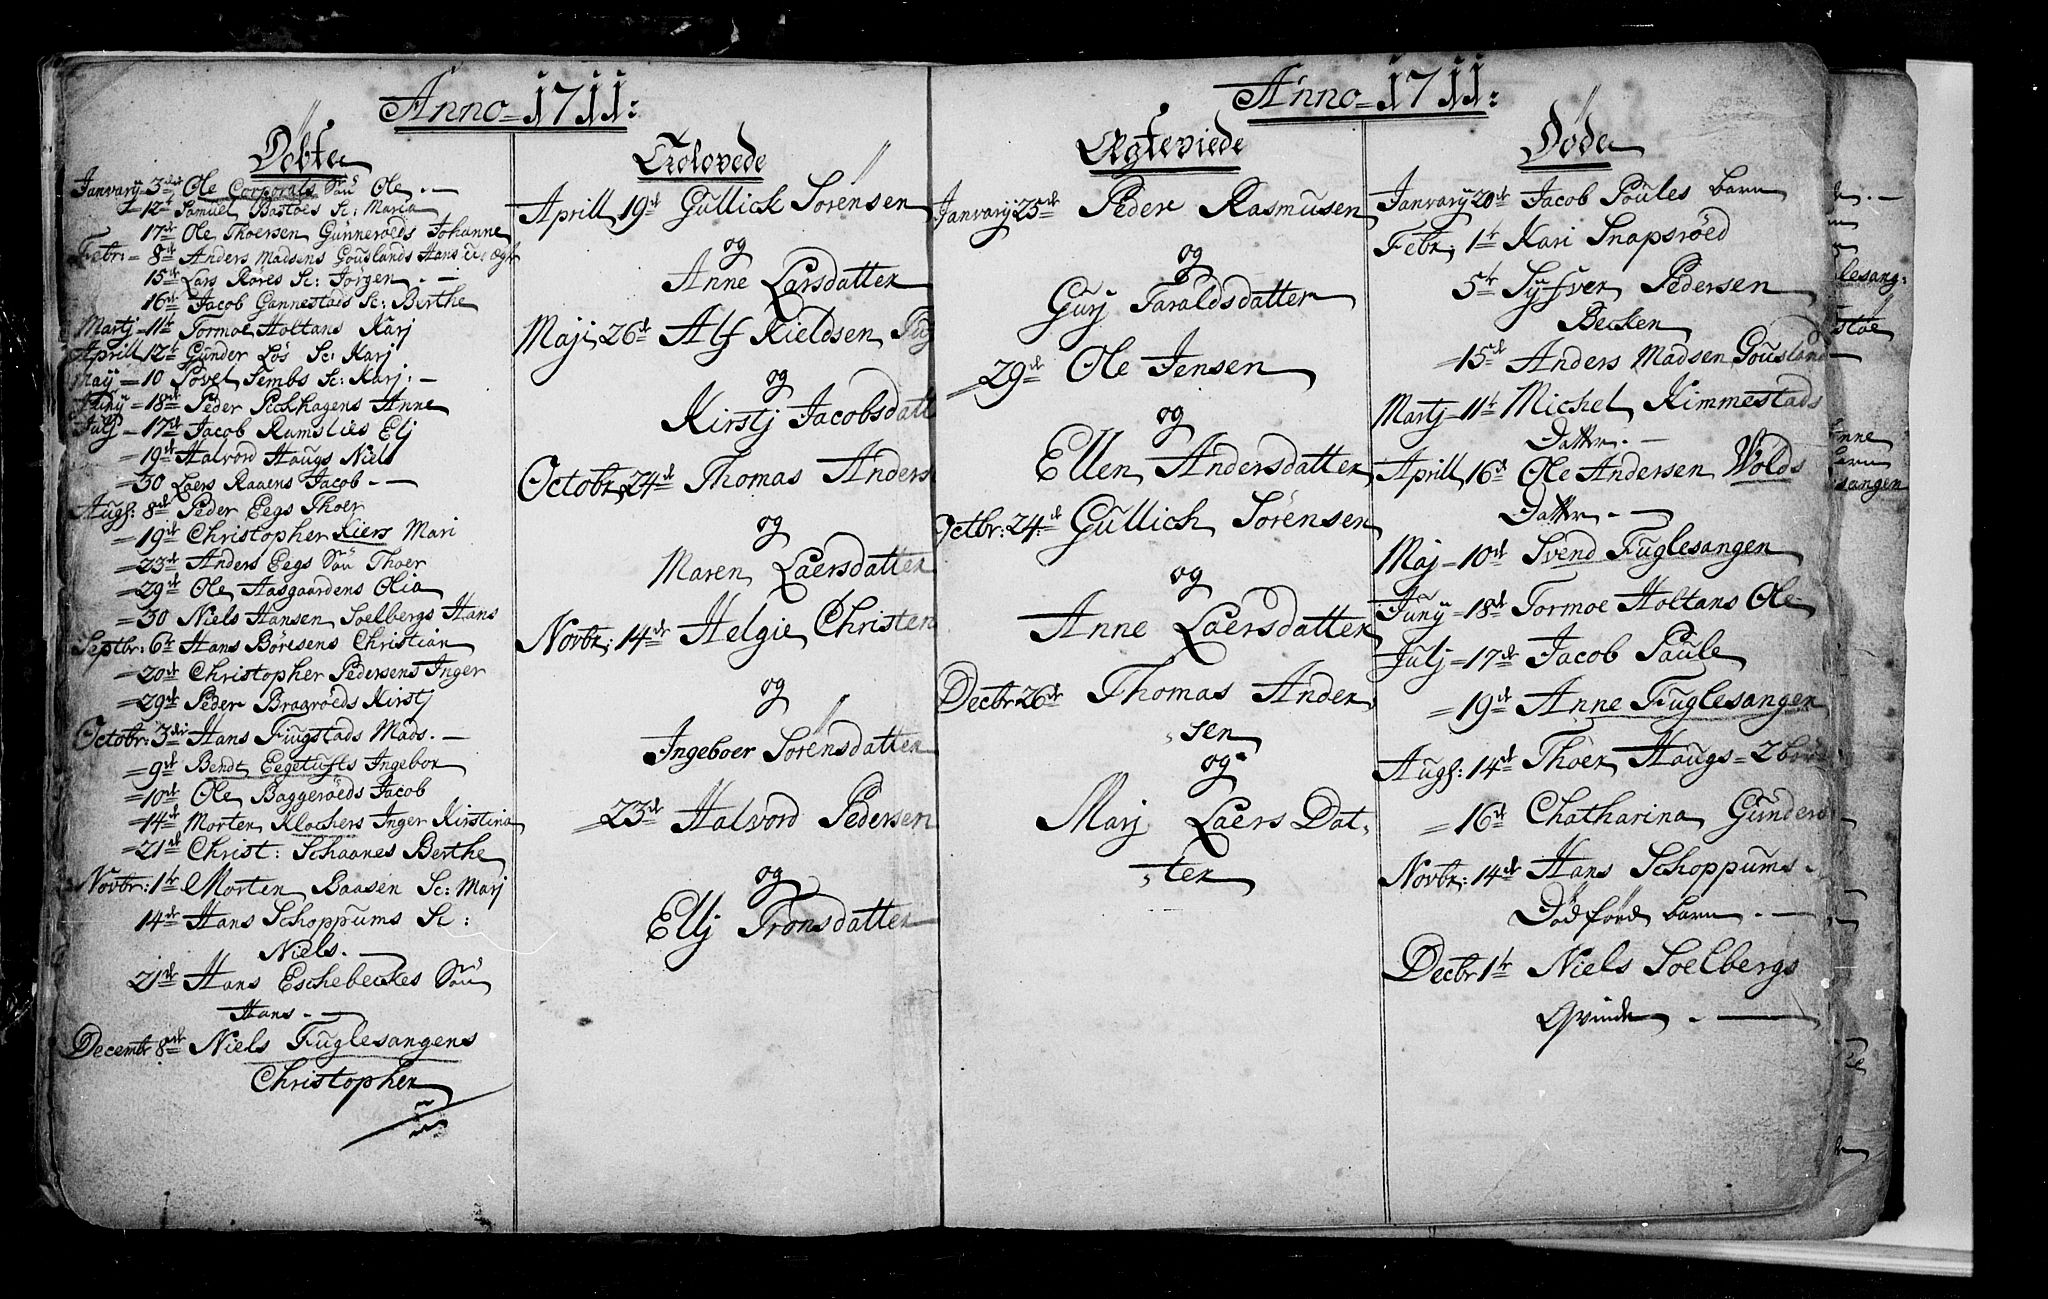 Anno 1711:
Döbte
January = 3die Ole Corporals Sön Ole. —
12t Samuel Bastöes Sc: Maria
17de Ole Thoersen Gunneröeds Johanne
Febr: = 8de Anders Madsens Gouslands Hans
15de Lars Röres Sc: Jörgen. —
16de Jacob Gannestads Sc: Berthe
Martj = 11te Tormoe Holtans Karj
Aprill 12t Gunder Lös Sc: Karj
May = 10 Povel Tembs Sc: Karj: —
Juny = 18de Peder Pichhagens Anne
Julj = 17de Jacob Ramslies Elj
= 19de Halvord Haugs Niels
= 30 Laers Ravens Jacob. —
Augs: 8de Peder Eegs Thoer
= 19de Christopher Kiers Mari
= 23de Anders Eegs Sön Thoer
= 29de Ole Aasgaardens Olia
= 30 Niels Hansen Soelbergs Hans
Septbr: 6te Hans Böresens Christian
= 20de Christopher Pedersens Inger
= 29de Peder Bragröeds Kirstj
Octobr: 3die Hans Fiugstads Mads. —
= 9de Bendt Eegetufts Ingebor
= 10de Ole Baggeröeds Jacob
= 14de Morten Klochers Inger Kirstina
= 21de Christ: Schaanes Berthe
Novbr: 1te Morten Baasen Sc: Marj
14de Hans Schoppums Sc:
Niels. —
21de Hans Eschebeckes Sön
Hans. —
Decembr 8de Niels Fuglesangens
Christopher
Trolovede
Aprill 19de Gullick Sörensen
og
Anne Larsdatter
Maji 26de Alf Kieldsen
og
Kirstj Jacobsdatt
Octobr 24de Thomas Anders
og
Maren Laersdatter
Novbr: 14de Helgie Christen
og
Ingeboer Sörensdatter
= 23de Halvord Pedersen
og
Ellj Tronsdatter
Anno 1711:
Ægteviede
January 25de Peder Rasmusen
og
Gurj Taraldsdatter
= 29de Ole Jensen
og
Ellen Andersdatter
Octbr: 24de Gullich Sörensen
og
Anne Laersdatter
Decbr 26de Thomas Ander
sen
og
Marj Laers Dat
ter
Döde
January 20de Jacob Poules barn
Febr: 1te Kari Snapsröed
5te Syfver Pedersen
Becken
= 15de Anders Madsen Gousland
Martj = 11te Michel Kimmestads
Datter. —
Aprill 16de Ole Andersen Wolds
Datter. —
Maj = 10de Svend Fuglesangen
Juny = 18de Tormoe Holtans Ole
Julj = 17de Jacob Paule
= 19de Anne Fuglesangen
Augs: 14de Thoer Haugs = 2 börn
= 16de Chatharina Gunders
Novbr: 14de Hans Schoppums
Död föed barn. —
Decbr 1te Niels Soelbergs
Qvinde. —